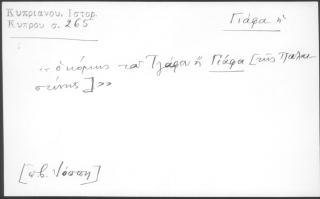 Κυπριανου. Ιστορ.
Κυπρου σ. 265
Γιάφα ἡ
«ὁ κόμης τοῦ Τζάφου ἢ Γιάφα [τῆς Παλαι-
στίνης]»
[πβ. Ἰόππη]